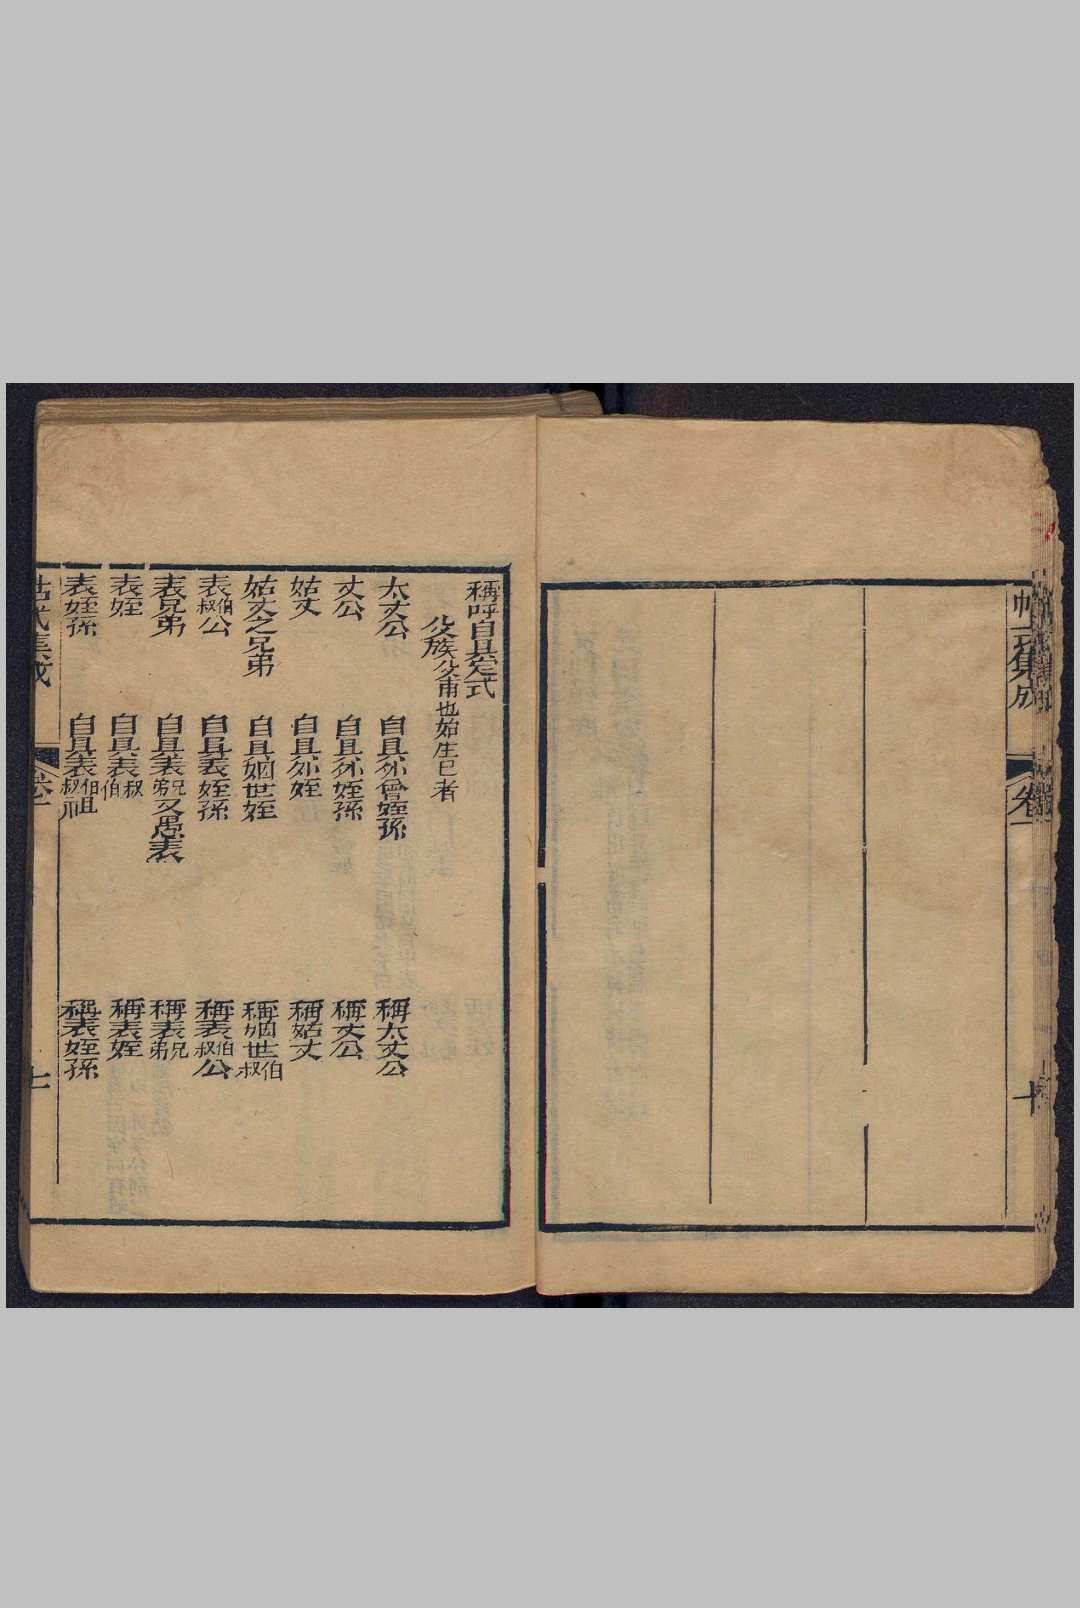 帖式集成
卷一
十
稱呼自具定式
父族父甫也始生已者
太丈公 自具外曾姪孫 稱太丈公
丈公 自具外姪孫 稱丈公
姑丈 自具外姪 稱姑丈
姑丈之兄弟 自具姻世姪 稱姻世伯叔
表伯叔公 自具表姪孫 稱表伯叔公
表兄弟 自具表兄弟又愚表 稱表兄弟
表姪 自具表叔伯 稱表姪
表姪孫 自具表伯叔祖 稱表姪孫
帖式集成
卷一
七